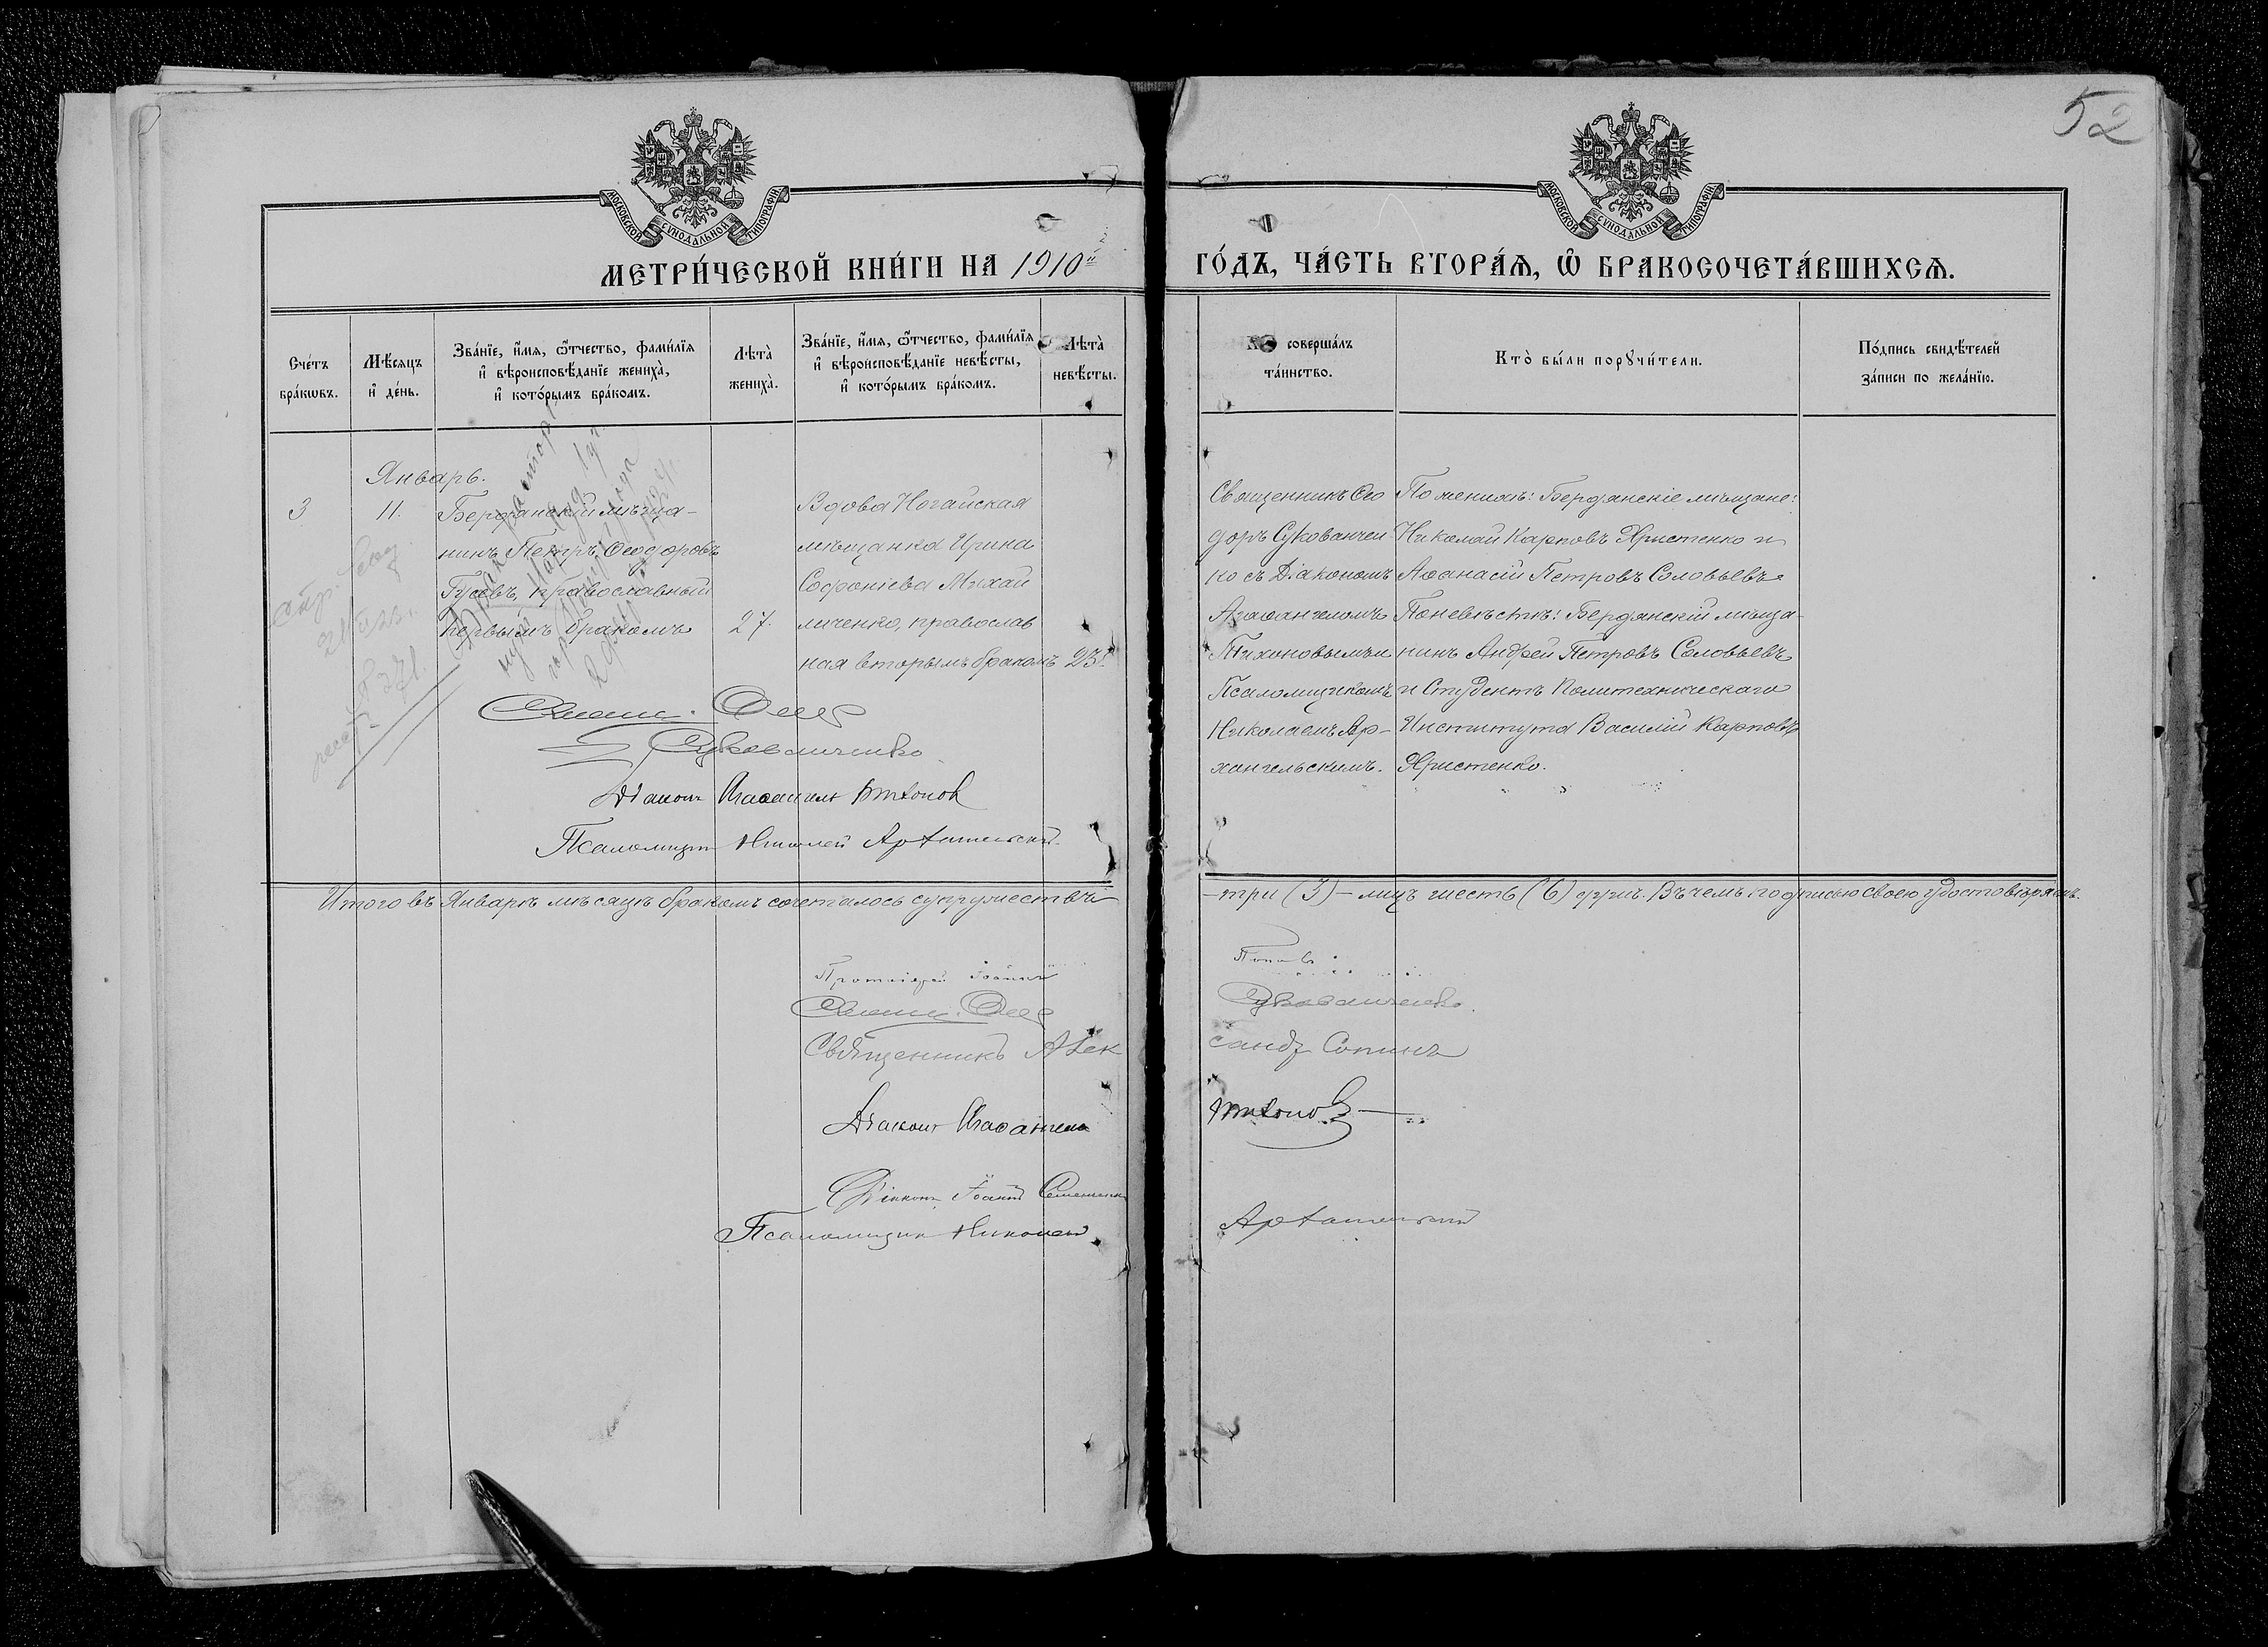 52
МОСКОВСКОЙ СѴНОДАЛЬНОЙ ТИПОГРАФІИ
МОСКОВСКОЙ СѴНОДАЛЬНОЙ ТИПОГРАФІИ
МЕТРИ́ЧЕСКОЙ КНИ́ГИ НА 1910й
ГО́ДЪ, ЧА́СТЬ ВТОРА́Ѧ, Ѡ҆ БРАКОСОЧЕТА́ВШИХСѦ.
Сче́тъ
бра́кѡвъ.
Мѣ́сяцъ
и҆ де́нь.
Зва́нїе, и҆́мѧ, ѻ҆́тчество, фами́лїѧ
и҆ вѣроисповѣ́данїе жениха̀,
и҆ кото́рымъ бра́комъ.
Лѣта̀
жениха̀.
Зва́нїе, и҆́мѧ, ѻ҆́тчество, фами́лїѧ
и҆ вѣроисповѣ́данїе невѣ́сты,
и҆ кото́рымъ бра́комъ.
Лѣта̀
невѣ́сты.
соверша́лъ
та́инство.
Кто̀ бы́ли порꙋчи́тели.
По́дпись свидѣ́телей
за́писи по жела́нїю.
Январь.
3
11.
Бердянскій мѣща-
нинъ Петръ Ѳеодоровъ
Гусевъ, православный
первымъ бракомъ
27.
Вдова Ногайская
мѣщанка Ирина
Софоніева Михай
личенко, православ
ная вторымъ бракомъ
23.
Священникъ Ѳео
доръ Сукованчен
ко съ Діакономъ
Агаѳангеломъ
Тихоновымъ и
Псаломщикомъ
Николаемъ Ар-
хангельскимъ.
По женихѣ: Бердянскіе мѣщане:
Николай Карповъ Христенко и
Аѳанасій Петровъ Соловьевъ
По невѣстѣ: Бердянскій мѣща-
нинъ Андрей Петровъ Соловьевъ
и Студентъ Политехническаго
Института Василій Карповъ
Христенко.
Сукованченко
Діаконъ Агаѳангелъ Тихонов
Псаломщик Николай Архангельскій.
Итого въ Январѣ мѣсяцѣ бракомъ сочеталось супружествъ
-три (3) - лицъ шесть (6) душъ. Въ чемъ подписью своею удостовѣряемъ.
Протоіерей Іоаннъ
Поповъ
Сукованченко.
Священникъ Алек
сандр Сопинъ
Діаконъ Агаѳангелъ
Тихоновъ
Діаконъ Іоаннъ
Псаломщик Николай
Архангельскій